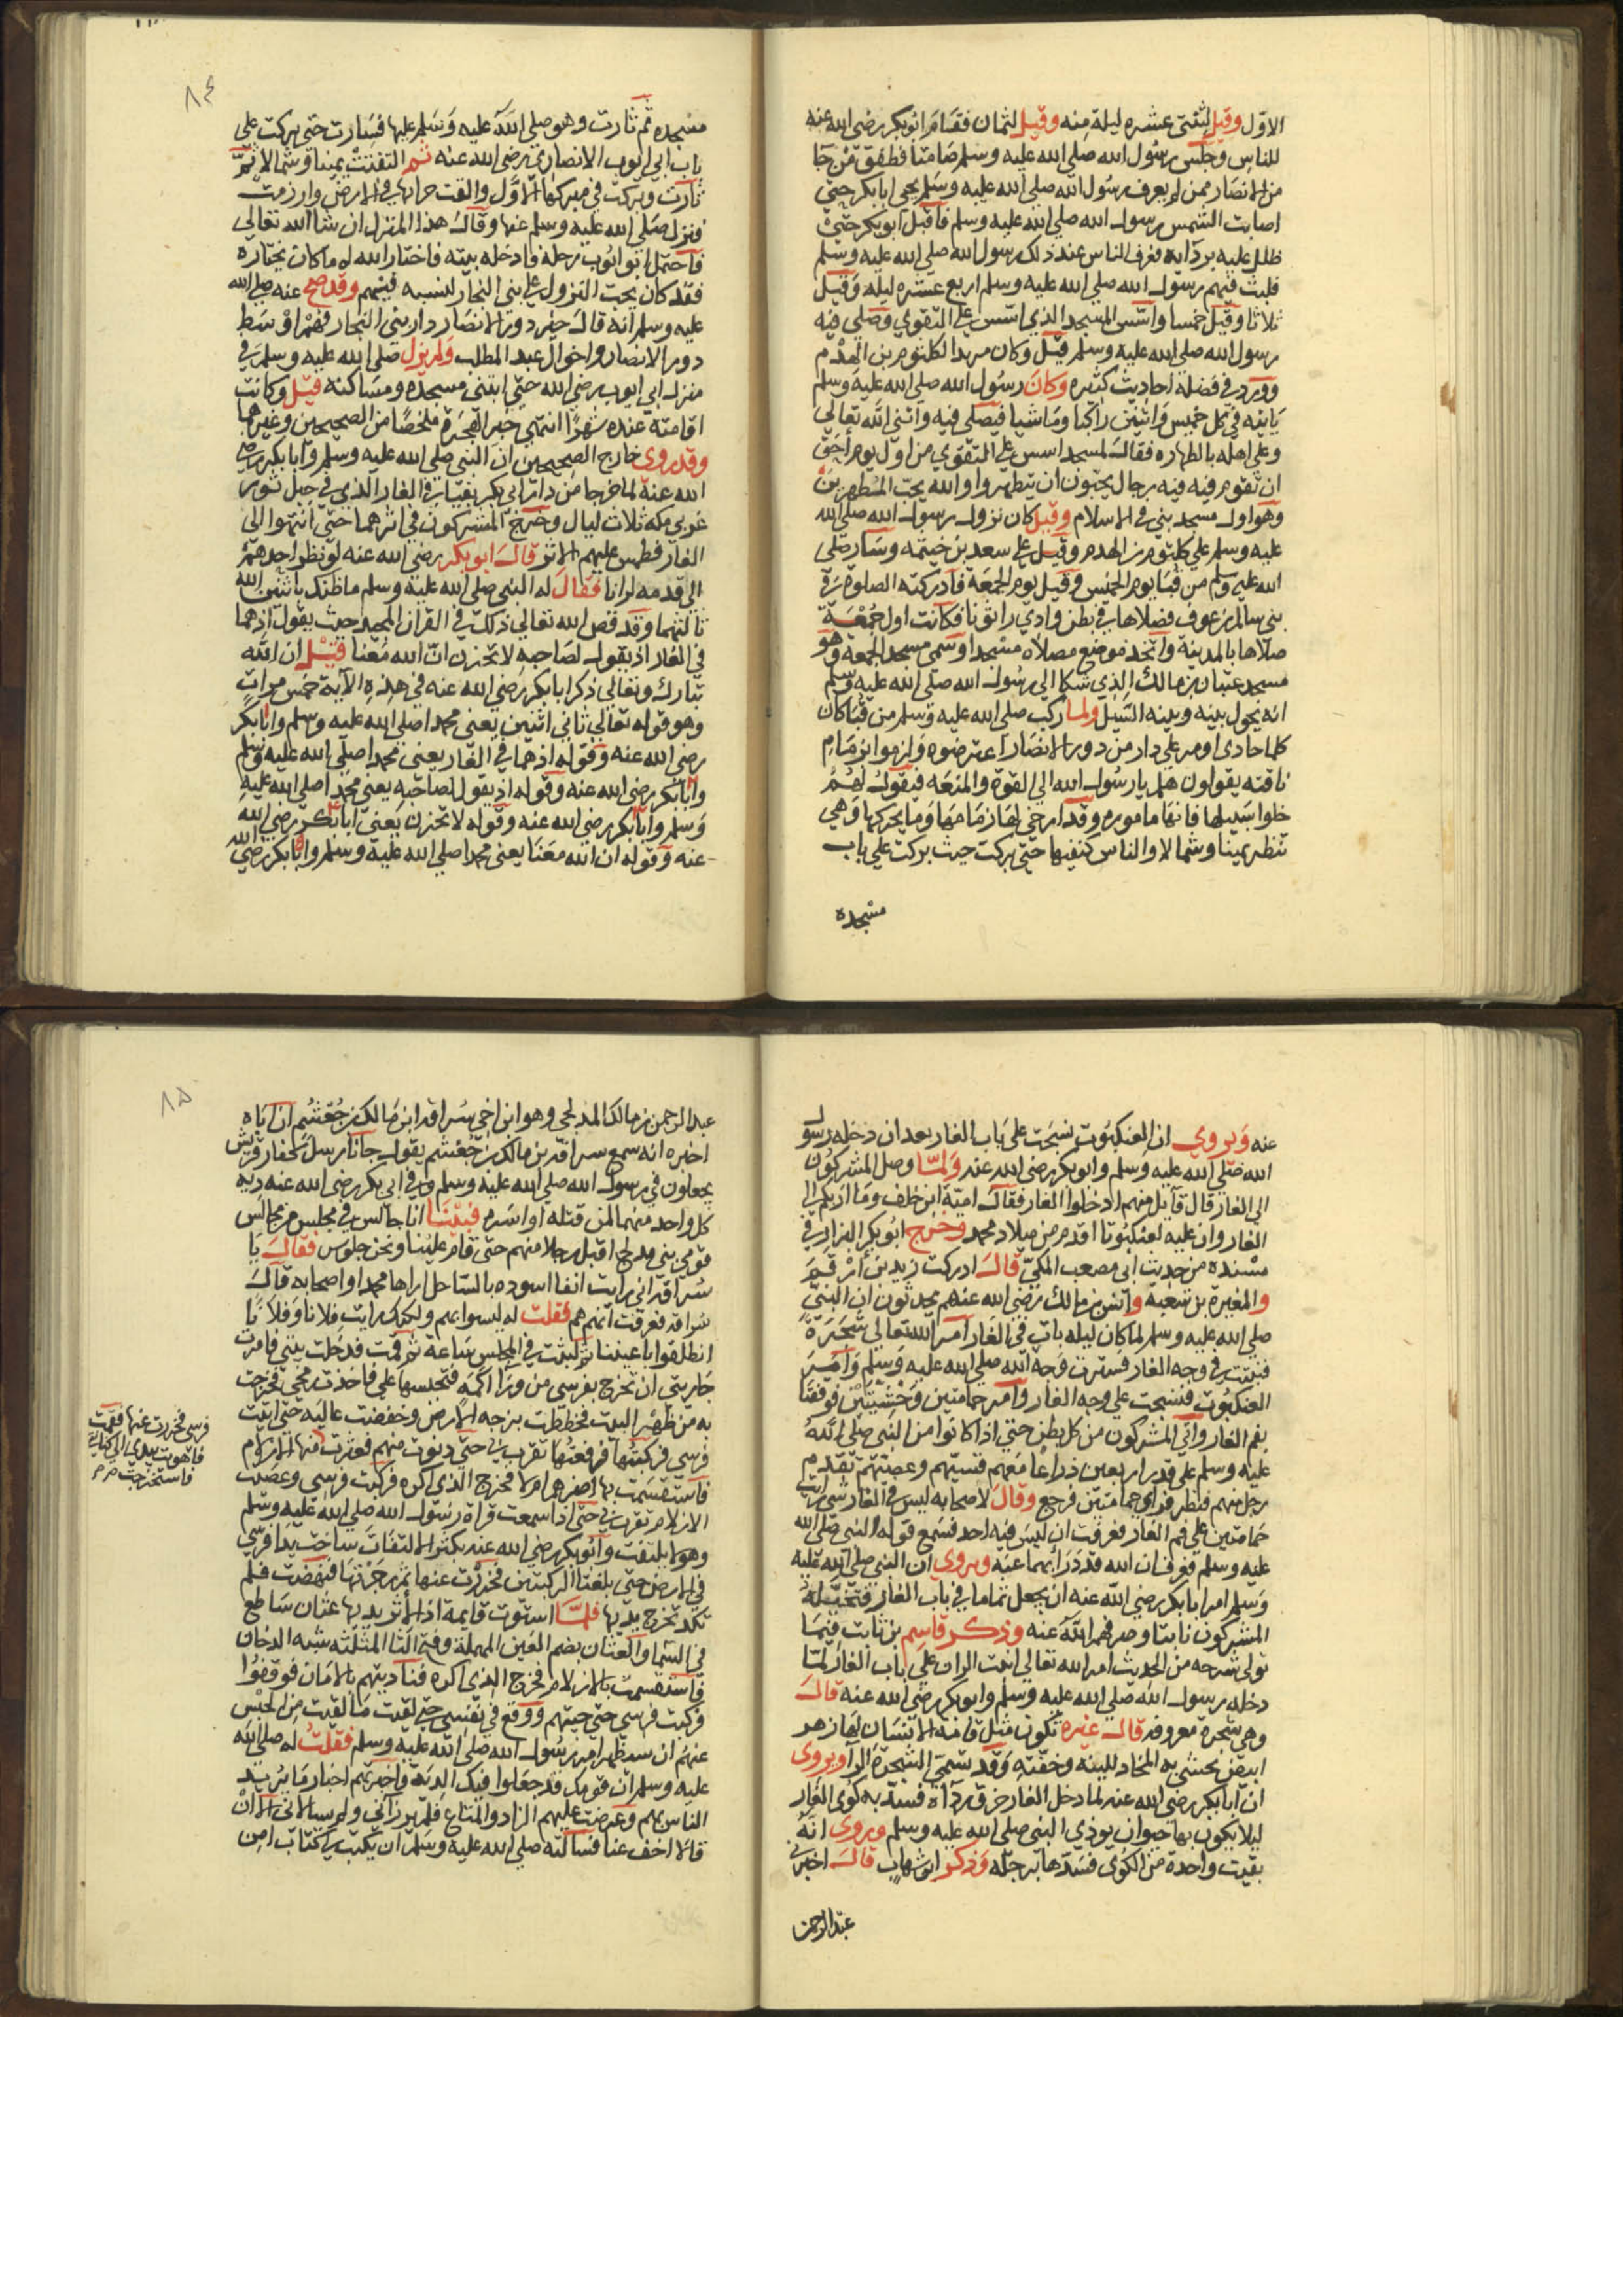 الاول وقيل لثنتي عشره ليلة منه وقيل لثمان فقام ابوبكر رضي الله عنه
للناس وجلس رسول الله صلي الله عليه وسلم صامتا فطفق من جا
من الانصار ممن لم يعرف رسول الله صلي الله عليه وسلم يحي ابابكر حتي
اصابت الشمس رسول الله صلي الله عليه وسلم فاقبل ابوبكر حتي
ظلل عليه بردايه فعرف الناس عند ذلك رسول الله صلي الله عليه وسلم
فلبث فيهم رسول الله صلي الله عليه وسلم اربع عشره ليله وقيل
ثلاثا وقيل خمسا واسس المسجد الذي اسس علي التقوي وصلي فيه
رسول الله صلي الله عليه وسلم قيل وكان مربدا لكلثوم بن الهدم
وورد في فضله احاديث كثيره وكان رسول الله صلي الله عليه وسلم
ياتيه في كل خميس واثنين راكبا وماشيا فيصلي فيه واثني الله تعالي
وعلي اهله بالطهاره فقال لمسجد اسس علي التقوي من اول يوم احق
ان تقوم فيه فيه رجال يحبون ان يتطهروا والله يحب المطهرين
وهو اول مسجد بني في الاسلام وقيل كان نزول رسول الله صلي الله
عليه وسلم علي كلثوم بن الهدم وقيل علي سعد بن خيثمه وسار صلي
الله عليه وسلم من قبا يوم الخميس وقيل يوم الجمعة فادركته الصلوة في
بني سالم بن عوف فصلاها في بطن وادي رانونا فكانت اول جمعة
صلاها بالمدينة واتخذ موضع مصلاه مسجدا وسمي مسجد الجمعة وهو
مسجد عتبان بن مالك الذي شكا الي رسول الله صلي الله عليه وسلم
انه يحول بينه وبينه السيل ولما ركب صلي الله عليه وسلم من قبا كان
كلما حاذي او مر علي دار من دور الانصار اعترضوه ولزموا بزمام
ناقته يقولون هلم يا رسول الله الي القوة والمنعه فيقول لهم
خلوا سبيلها فانها ماموره وقد ارخي لها زمامها وما يحركها وهي
تنظر يمينا وشمالا والناس كنفيها حتي بركت حيث بركت علي باب
مسجده
٨٤
مسجده ثم ثارت وهو صلي الله عليه وسلم عليها فسارت حتي بركت علي
باب ابي ايوب الانصاري رضي الله عنه ثم التفتت يمينا وشمالا ثم
ثارت وبركت في مبركها الاول والقت جرانها في الارض وارزمت
فنزل صلي الله عليه وسلم عنها وقال هذا المنزل ان شا الله تعالي
فاحتمل ابو ايوب رحله فادخله بيته فاختار الله له ما كان يختاره
فقد كان يحب النزول علي بني النجار لنسبه فيهم وقد صح عنه صلي الله
عليه وسلم انه قال خير دور الانصار دار بني النجار فهم اوسط
دور الانصار واخوال عبد المطلب ولم يزل صلي الله عليه وسلم في
منزل ابي ايوب رضي الله حتي ابتني مسجده ومساكنه قيل وكانت
اقامته عنده شهرا انتهي خبر الهجرة ملخصا من الصحيحين وغيرهما
وقد روي خارج الصحيحين ان النبي صلي الله عليه وسلم وابابكر رضي
الله عنه لما خرجا من دار ابي بكر بقيا في الغار الذي في جبل ثور
غربي مكة ثلاث ليال وخرج المشركون في اثرهما حتي انتهوا الي
الغار فطمس عليهم الاثر قال ابوبكر رضي الله عنه لو نظر احدهم
الي قدمه لرانا فقال له النبي صلي الله عليه وسلم ما ظنك باثنين الله
ثالثهما وقد قص الله تعالي ذلك في القران المجيد حيث يقول اذ هما
في الغار اذ يقول لصاحبه لا تحزن ان الله معنا قيل ان الله
تبارك وتعالي ذكر ابابكر رضي الله عنه في هذه الآية خمس مرات
وهو قوله تعالي ثاني اثنين يعني محمدا صلي الله عليه وسلم وابابكر
رضي الله عنه وقوله اذ هما في الغار يعني محمدا صلي الله عليه وسلم
وابابكر رضي الله عنه وقوله اذ يقول لصاحبه يعني محمدا صلي الله عليه
وسلم وابابكر رضي الله عنه وقوله لا تحزن يعني ابابكر رضي الله
عنه وقوله ان الله معنا يعني محمدا صلي الله عليه وسلم وابابكر رضي الله
عنه ويروي ان العنكبوت نسجت علي باب الغار بعد ان دخله رسول
الله صلي الله عليه وسلم وابوبكر رضي الله عنه ولما وصل المشركون
الي الغار قال قايل منهم ادخلوا الغار فقال امية ابن خلف وما اربكم الي
الغار وان عليه لعنكبوتا اقدم من ميلاد محمد وخرج ابوبكر البزار في
مسنده من حديث ابي مصعب المكي قال ادركت زيد بن ارقم
والمغيرة بن شعبه وانس بن مالك رضي الله عنهم يحدثون ان النبي
صلي الله عليه وسلم لما كان ليله بات في الغار امر الله تعالي شجرة
فنبتت في وجه الغار فسترت وجه الله صلي الله عليه وسلم وامر
العنكبوت فنسجت علي وجه الغار وامر حمامتين وحشيتين فوقفتا
بفم الغار واتي المشركون من كل بطن حتي اذا كانوا من النبي صلي الله
عليه وسلم علي قدر اربعين ذراعا معهم قسيهم وعصيهم تقدم
رجل منهم فنظر فراي حمامتين فرجع وقال لاصحابه ليس في الغار شي رايت
حمامتين علي فم الغار فعرفت ان ليس فيه احد فسمع قوله النبي صلي الله
عليه وسلم فعرف ان الله قد درا بهما عنه وروي ان النبي صلي الله عليه
وسلم امر ابابكر رضي الله عنه ان يجعل ثماما في باب الغار فتخيله
المشركون نابتا وصرفهم الله عنه وذكر قاسم بن ثابت فيما
تولي شرحه من الحديث امر الله تعالي انبت الران علي باب الغار لما
دخله رسول الله صلي الله عليه وسلم وابوبكر رضي الله عنه قال
وهي شجرة معروفه قال غيره تكون مثل قامة الانسان لها زهر
ابيض يحشي به المخاد للينه وخفته وقد تسمي الشجرة الرا ويروي
ان ابابكر رضي الله عنه لما دخل الغار خرق رداه فسد به كوي الغار
ليلا يكون بها حيوان يوذي النبي صلي الله عليه وسلم ويروي انه
بقيت واحدة من الكوي فسدها برجله وذكر ابن شهاب قال اخبرني
عبد الرحمن
٨٥
عبد الرحمن بن مالك المدلجي وهو ابن اخي سراقه ابن مالك بن جعشم ان اباه
اخبره انه سمع سراقه بن مالك بن جعشم يقول جانا رسل كفار قريش
يجعلون في رسول الله صلي الله عليه وسلم وفي ابي بكر رضي الله عنه دية
كل واحد منهما لمن قتله او اسره فبينا انا جالس في مجلس من مجالس
قومي بني مدلج اقبل رجلا منهم حتي قام علينا ونحن جلوس فقال يا
سراقه اني رايت انفا اسوده بالساحل اراها محمدا واصحابه قال
سراقه فعرفت انهم هم فقلت له ليسوا بهم ولكنك رايت فلانا وفلانا
انطلقوا باعيننا ثم لبثت في المجلس ساعة ثم قمت فدخلت بيتي فامرت
جاريتي ان تخرج بفرسي من ورا اكمه فتحبسها علي فاخذت رمحي فخرجت
به من ظهر البيت فخططت بزجه الارض وخفضت عاليه حتي اتيت
فرسي فركبتها فرفعتها تقرب بي حتي دنوت منهم فعثرت منها الازلام
فاستقسمت بها اضرهم ام لا فخرج الذي اكره فركبت فرسي وعصيت
الازلام تقرب بي حتي اذا سمعت قراة رسول الله صلي الله عليه وسلم
وهو لا يلتفت وابوبكر رضي الله عنه يكثر الالتفات ساخت يدا فرسي
في الارض حتي بلغتا الركبتين فخررت عنها ثم زجرتها فنهضت فلم
تكد تخرج يديها فلما استوت قايمة اذ لاثر يديها عثان ساطع
في السما والعثان بضم العين المهملة وفتح الثا المثلثه شبه الدخان
فاستقسمت بالازلام فخرج الذي اكره فناديتهم بالامان فوقفوا
فركبت فرسي حتي جيتهم ووقع في نفسي حين لقيت ما لقيت من الحبس
عنهم ان سيظهر امر رسول الله صلي الله عليه وسلم فقلت له صلي الله
عليه وسلم ان قومك قد جعلوا فيك الدية فاخبرتهم اخبار ما يريد
الناس بهم وعرضت عليهم الزاد والمتاع فلم يرزاني ولم يسالاني الا ان
قالا اخف عنا فسالته صلي الله عليه وسلم ان يكتب لي كتاب امن
فرسي فخررت عنها فقمت
فاهويت بيدي الي كنانتي
فاستخرجت